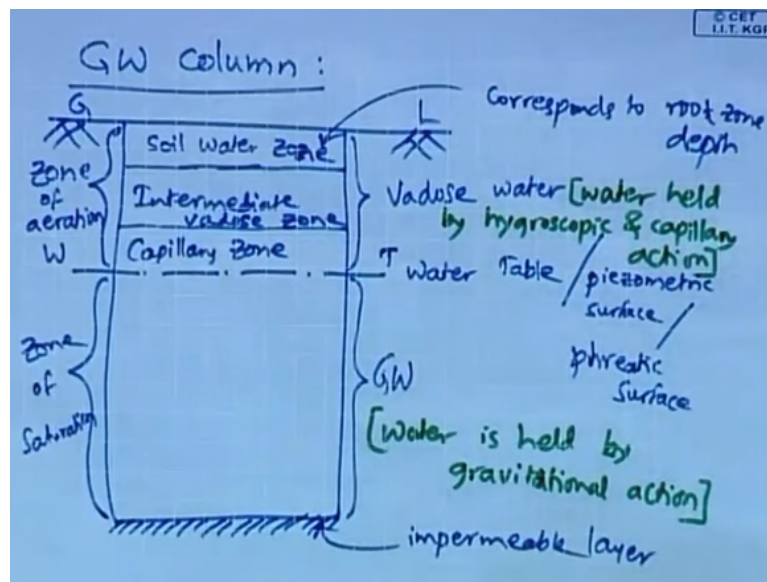 © CET
I.I.T. KGP
GW Column :
G
L
Corresponds to root zone
depth
Soil Water Zone
Zone
of
aeration
Intermediate
vadose zone
Vadose water [water held
by hygroscopic & capillary
action]
Capillary Zone
W
T
Water Table / piezometric
surface /
phreatic
surface
Zone
of
Saturation
GW
[Water is held by
gravitational action]
impermeable layer